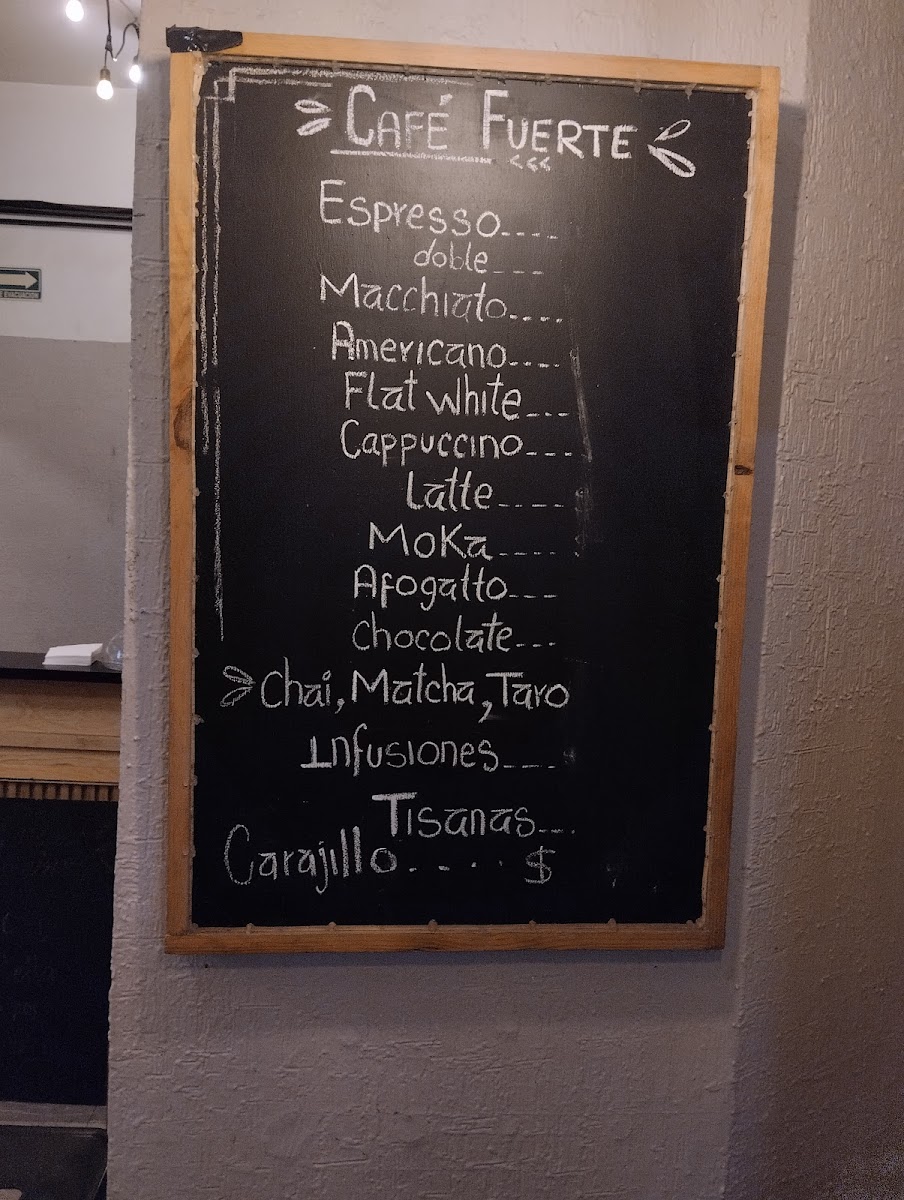 CAFÉ FUERTE
Espresso....
doble...
Macchiato....
Americano....
Flat white...
Cappuccino...
Latte....
MoKa....
Afogatto...
Chocolate...
Chai, Matcha, Taro
Infusiones....
Tisanas...
Carajillo..... $